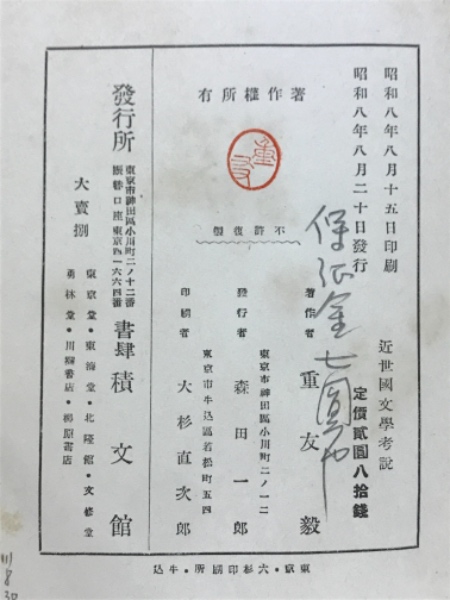 昭和八年八月十五日印刷
昭和八年八月二十日發行
近世國文學考説
定價貳圓八拾錢
保証金七圓也
著作權所有
重友
不許復製
著作者 重友毅
東京市神田區小川町二ノ一二
發行者 森田一郎
東京市牛込區若松町五四
印刷者 大杉直次郎
發行所
東京市神田區小川町二ノ十二番
振替口座東京四一六六四番
書肆 積文館
大賣捌
東京堂・東海堂・北隆館・文修堂
勇林堂・川瀬書店・柳原書店
東京・大杉印刷所・牛込
111
8
30